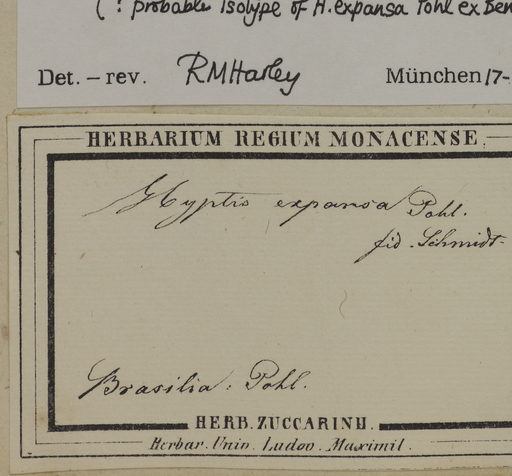 (? probable Isotype of H. expansa Pohl ex Ben
Det. – rev. RMHarley München 17-
HERBARIUM REGIUM MONACENSE
Hyptis expansa Pohl.
fid. Schmidt.
Brasilia: Pohl.
HERB. ZUCCARINII.
Herbar. Univ. Ludov. Maximil.